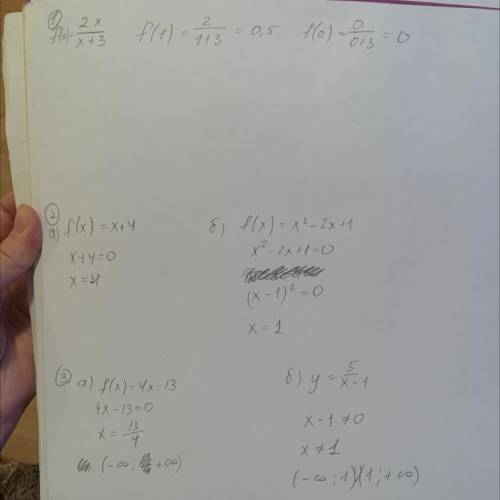 ① f(x) = 2x/(x+3) f(1) = 2/(1+3) = 0,5 f(0) = 0/(0+3) = 0
②
а) f(x) = x+4
x+4=0
x=-4
б) f(x) = x² - 2x+1
x² - 2x+1=0
(x-1)² = 0
x = 1
③ а) f(x) = 4x-13
4x-13=0
x = 13/4
(-∞; +∞)
б) y = 5/(x-1)
x-1 ≠ 0
x ≠ 1
(-∞; 1)(1; +∞)